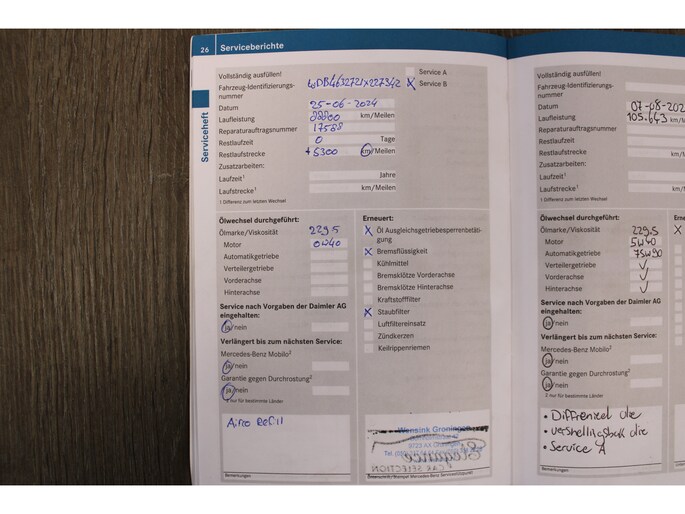 26 Serviceberichte
Serviceheft
Vollständig ausfüllen!
Service A
Fahrzeug-Identifizierungs-
nummer WDB4632721X227342 X Service B
Datum 25-06-2024
Laufleistung 88800 km/Meilen
Reparaturauftragsnummer 17588
Restlaufzeit 0 Tage
Restlaufstrecke +5300 km/Meilen
Zusatzarbeiten:
Laufzeit¹ Jahre
Laufstrecke¹ km/Meilen
¹ Differenz zum letzten Wechsel
Ölwechsel durchgeführt:
Ölmarke/Viskosität 229.5
Motor 0W40
Automatikgetriebe
Verteilergetriebe
Vorderachse
Hinterachse
Service nach Vorgaben der Daimler AG
eingehalten:
ja/nein
Verlängert bis zum nächsten Service:
Mercedes-Benz Mobilo²
ja/nein
Garantie gegen Durchrostung²
ja/nein
² nur für bestimmte Länder
Airco Refill
Bemerkungen
Erneuert:
X Öl Ausgleichsgetriebesperrenbetäti-
gung
X Bremsflüssigkeit
Kühlmittel
Bremsklötze Vorderachse
Bremsklötze Hinterachse
Kraftstofffilter
X Staubfilter
Luftfiltereinsatz
Zündkerzen
Keilrippenriemen
Wensink Groningen
9723 AX Groningen
Elegance
CAR SELECTION
Datum/Unterschrift/Stempel Mercedes-Benz Servicestützpunkt
Vollständig ausfüllen!
Fahrzeug-Identifizierungs-
nummer
Datum 07-08-202
Laufleistung 105.643 km/M
Reparaturauftragsnummer
Restlaufzeit
Restlaufstrecke km/M
Zusatzarbeiten:
Laufzeit¹
Laufstrecke¹ km/M
¹ Differenz zum letzten Wechsel
Ölwechsel durchgeführt:
Ölmarke/Viskosität 229.5
Motor 5W40
Automatikgetriebe 75W90
Verteilergetriebe ✓
Vorderachse ✓
Hinterachse ✓
Service nach Vorgaben der Daimler AG
eingehalten:
ja/nein
Verlängert bis zum nächsten Service:
Mercedes-Benz Mobilo²
ja/nein
Garantie gegen Durchrostung²
ja/nein
² nur für bestimmte Länder
• Service A
Bemerkungen